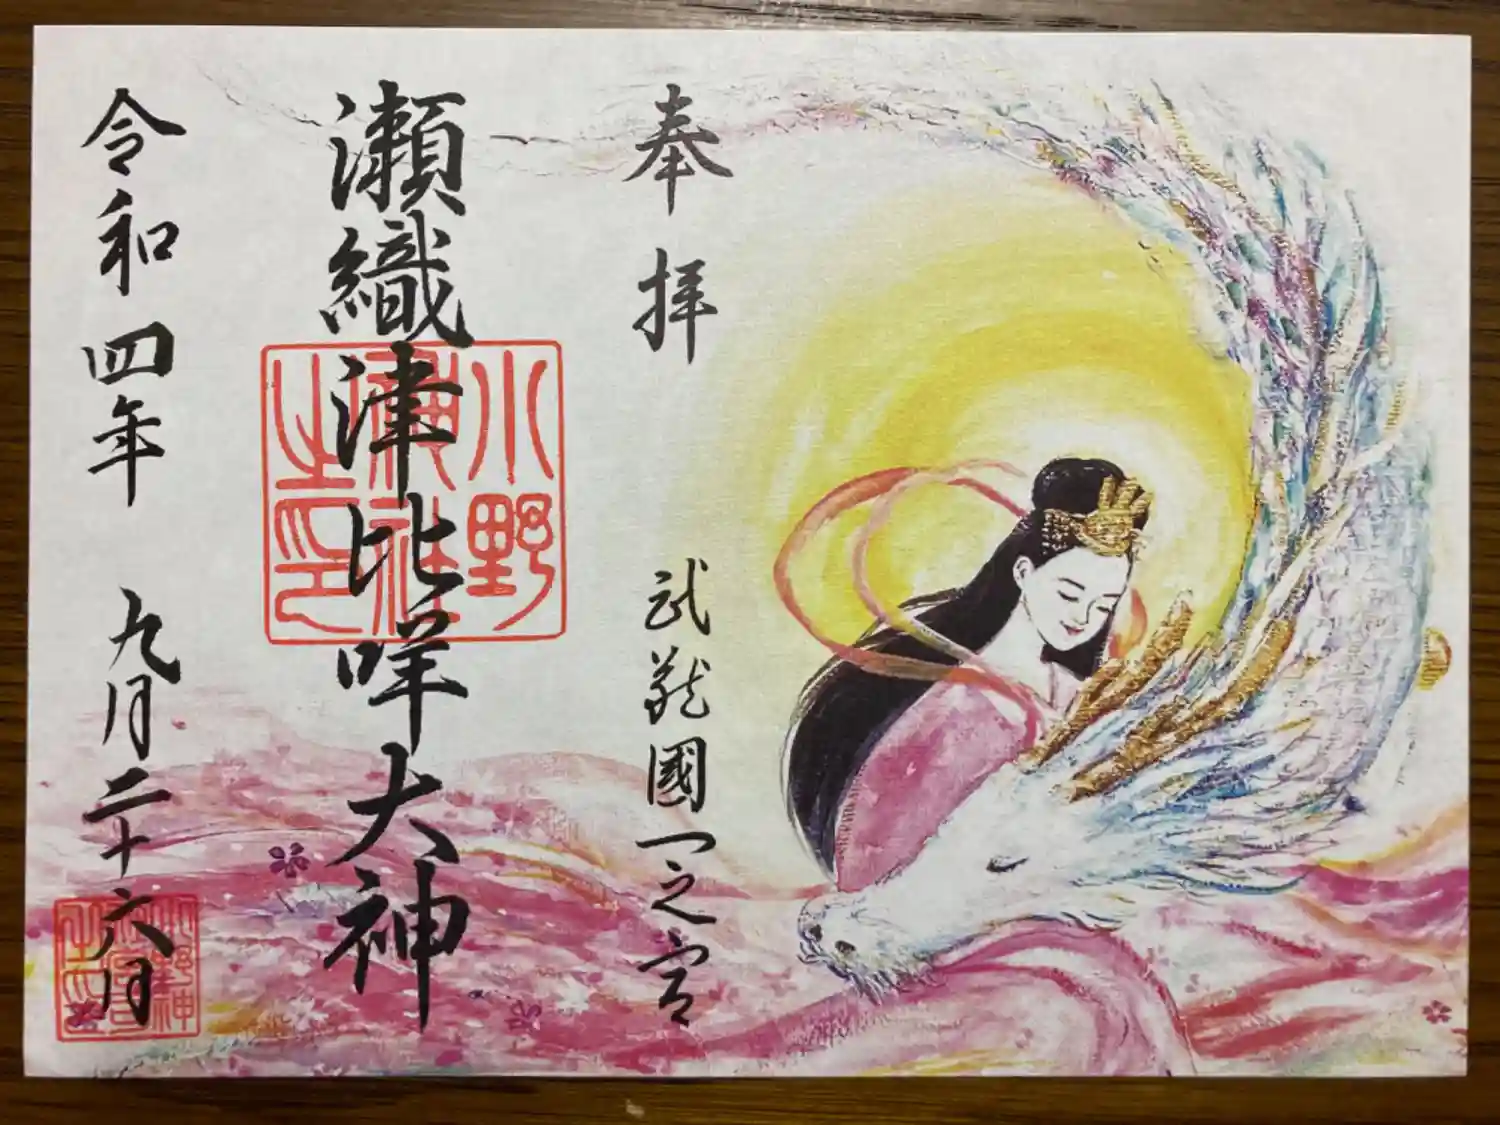 奉拝
武蔵國一之宮
瀬織津比咩大神
小野
神社
之印
令和四年 九月二十六日